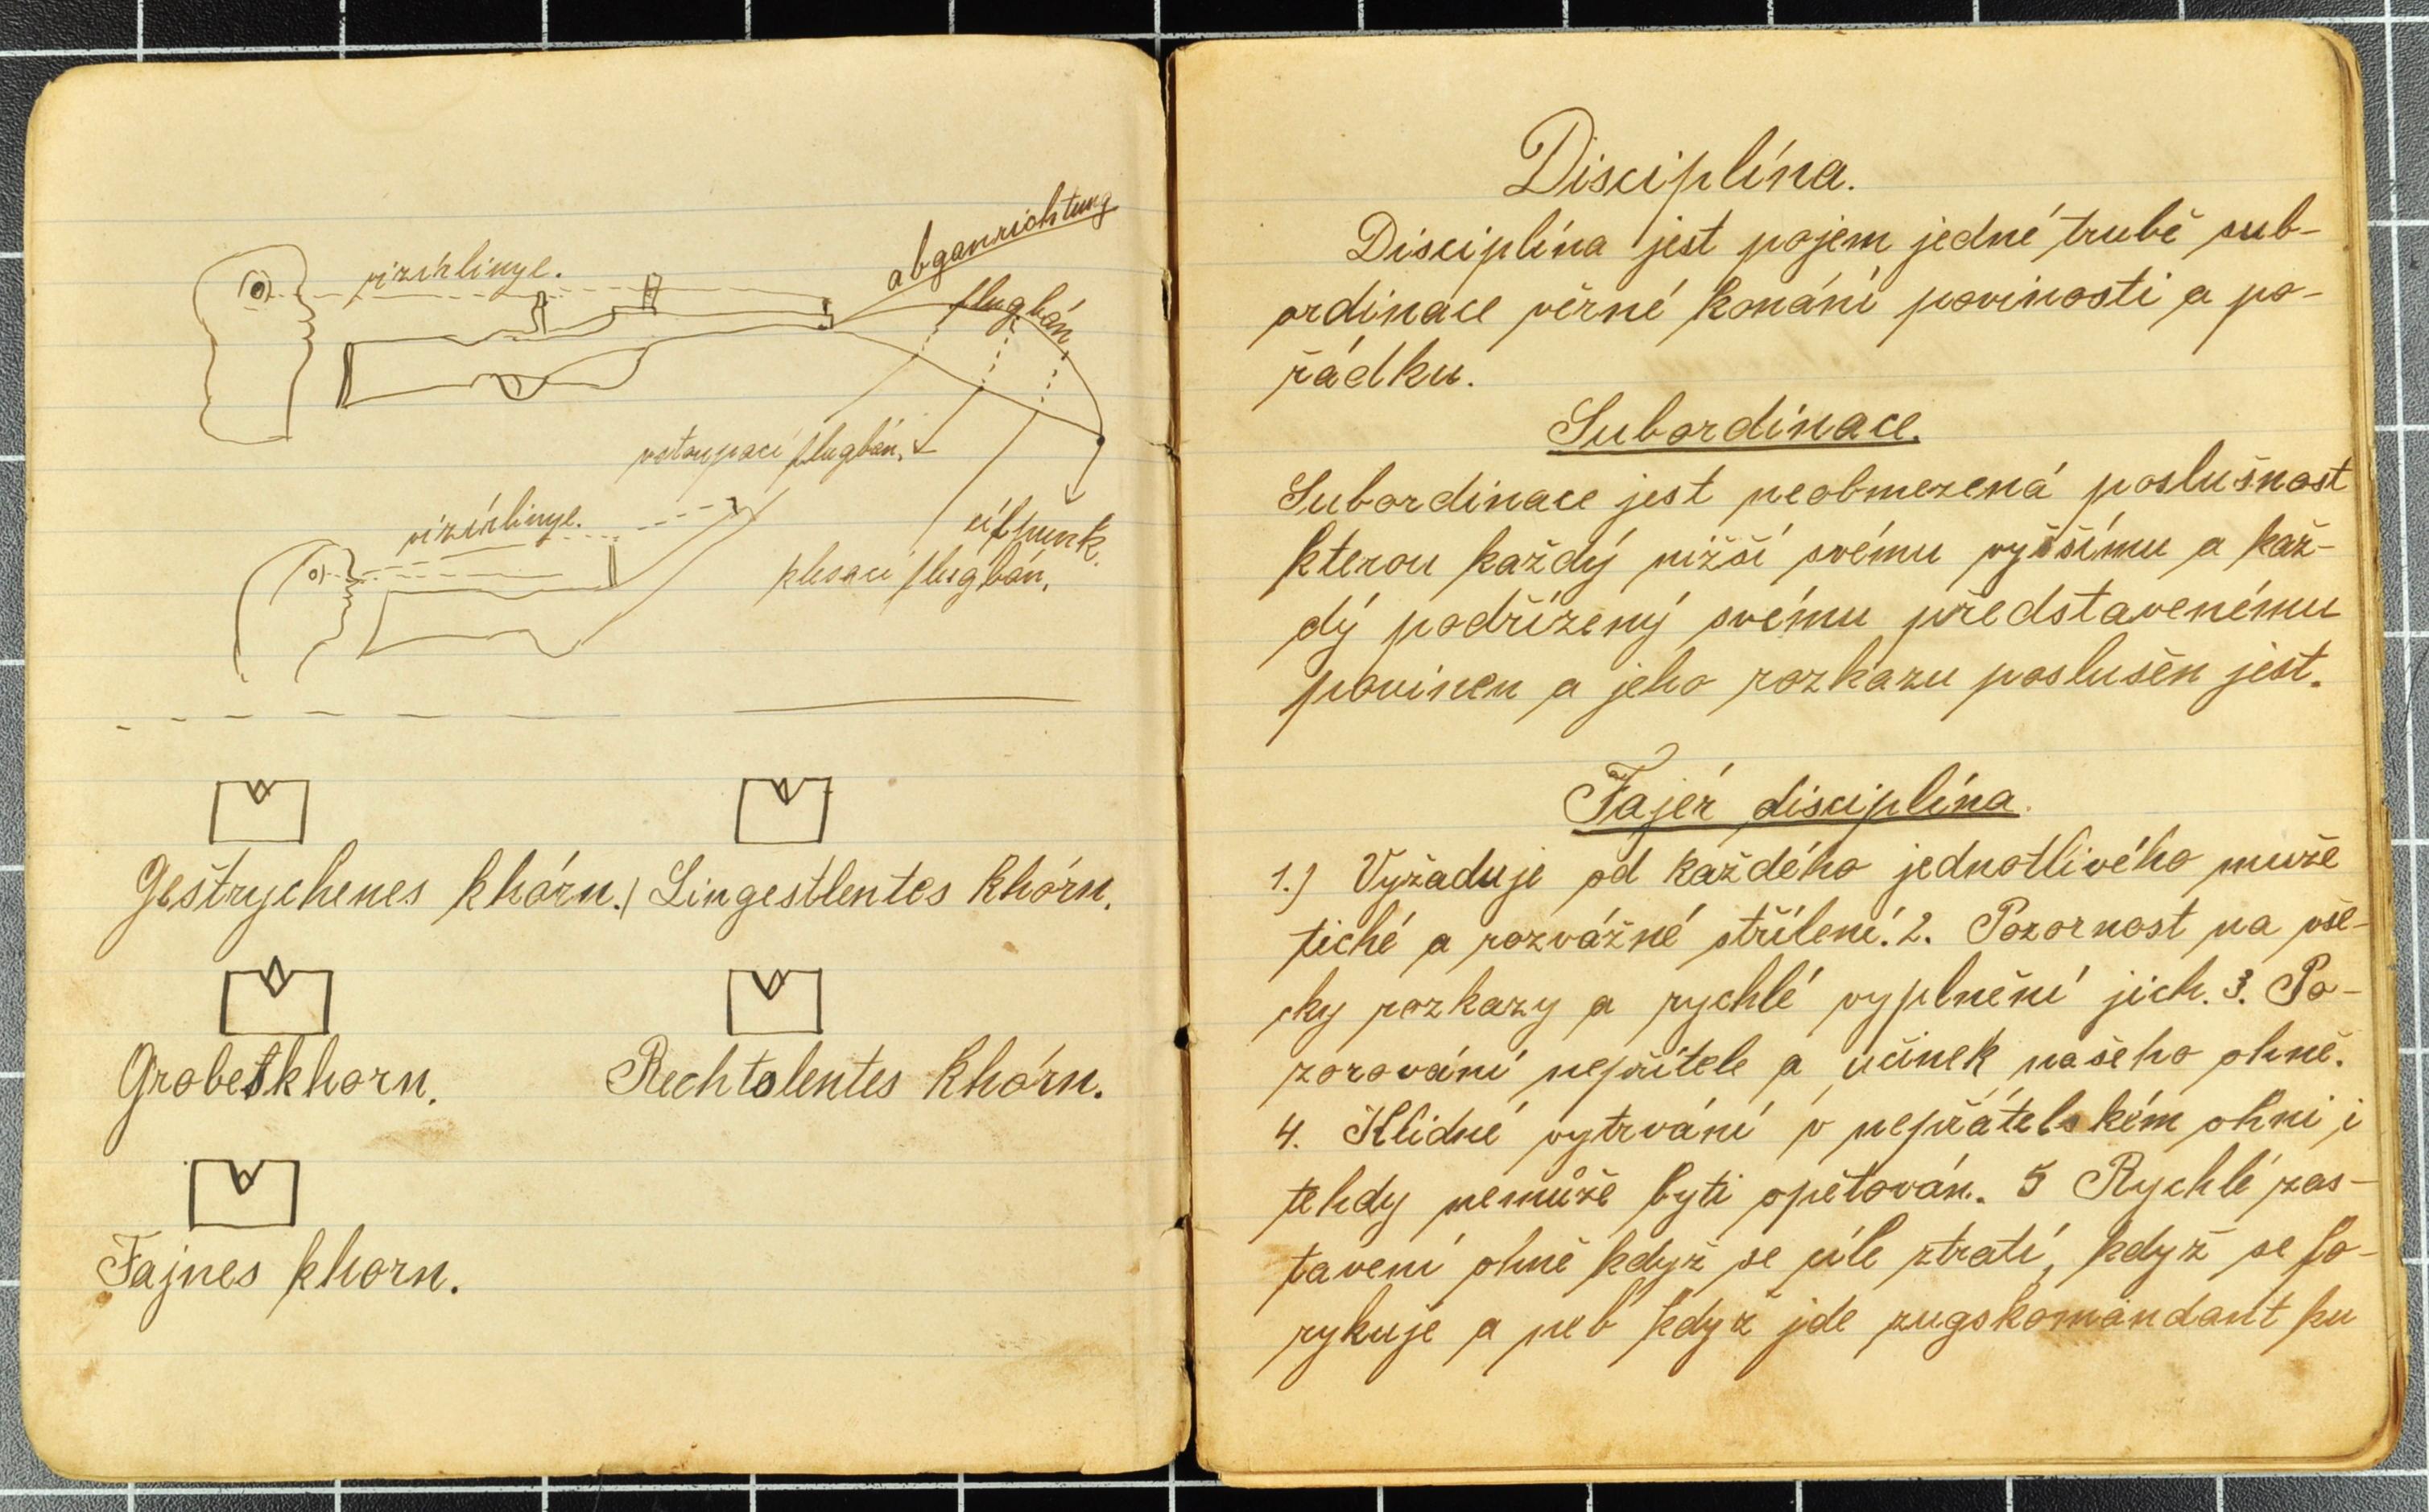 abganrichtung
vizírlinye.
flugbán
vstoupací flugbán.
vizírlinye.
cílpunk.
klesací flugbán.
Geštrychenes khórn. Lingestlentes khórn.
Grobeskhorn. Rechtslentes khórn.
Fajnes khorn.
Disciplína.
Disciplína jest pojem jedné trubě sub-
ordinace věrné konání povinosti a po-
řádku.
Subordinace.
Subordinace jest neobmezená poslušnost
kterou každý nižší svému vyššímu a kaž-
dý podřízený svému představenému
povinen a jeho rozkazu poslušěn jest.
Fajér disciplína.
1.) Vyžaduje od každého jednotlivého muže
tiché a rozvážné střílení. 2. Pozornost na vše-
cky rozkazy a rychlé vyplnění jich. 3. Po-
zorování nepřítele a účinek našeho ohně.
4. Klidné vytrvání v nepřátelském ohni i
tehdy nemůže byti opětován. 5 Rychlé zas-
tavení ohně když se cíle ztratí, když se fo-
rykuje a neb když jde zugskomandant ku